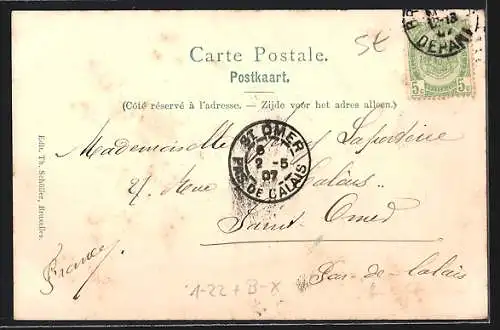 St
Carte Postale.
Postkaart.
(Côté réservé à l'adresse. — Zijde voor het adres alleen.)
DEPART
5c 5c
Mademoiselle Laperine
Rue Calais
Saint Omer
Pas-de-Calais
France
ST OMER
2-5
07
PAS DE CALAIS
1-22 + B-X
Edit. Th. Schüller, Bruxelles.